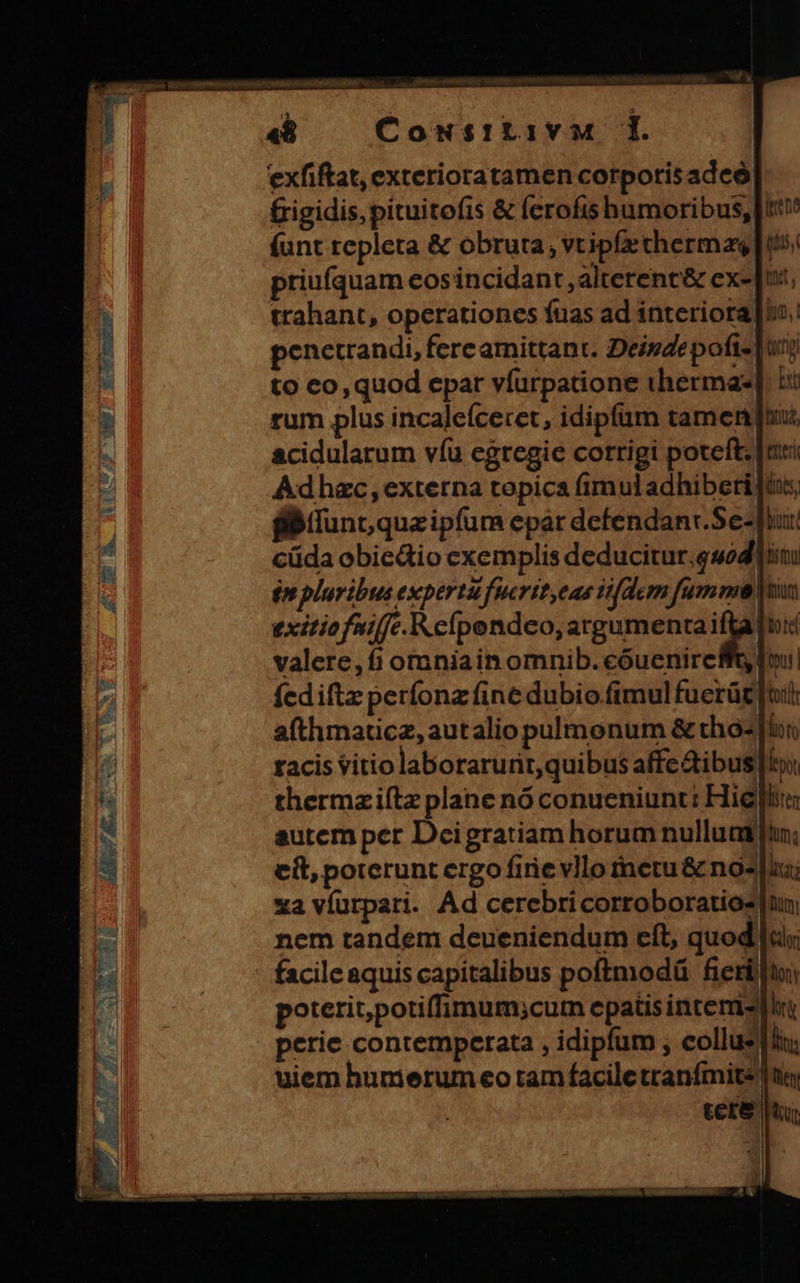 48 CONSILIVM I.
exſiſtat, exteriora tamen corporis adeò
frigidis, pituitoſis & ſeroſis humoribus,
ſunt repleta & obruta, vt ipſæ thermæ,
priuſquam eos incidant, alterent & ex-
trahant, operationes ſuas ad interiora
penetrandi, fere amittant. Deinde poſi-
to eo, quod epar vſurpatione therma-
rum plus incaleſceret, idipſum tamen
acidularum vſu egregie corrigi poteſt.
Ad hæc, externa topica ſimul adhiberi
poſſunt, quæ ipſum epar defendant. Se-
cūda obiectio exemplis deducitur. quod
in pluribus expertū fuerit, eas iiſdem ſummo
exitio fuiſſe. Reſpondeo, argumenta iſta
valere, ſi omnia in omnib. cōuenirẽt,
ſed iſtæ perſonæ ſine dubio ſimul fuerūt
aſthmaticæ, aut alio pulmonum & tho-
racis vitio laborarunt, quibus affectibus
thermæ iſtæ plane nō conueniunt: Hic
autem per Dei gratiam horum nullum
eſt, poterunt ergo ſine vllo metu & no-
xa vſurpari. Ad cerebri corroboratio-
nem tandem deueniendum eſt, quod
facile aquis capitalibus poſtmodū fieri
poterit, potiſſimum; cum epatis intem-
perie contemperata, idipſum, collu-
uiem humorum eo tam facile tranſmit-
tere